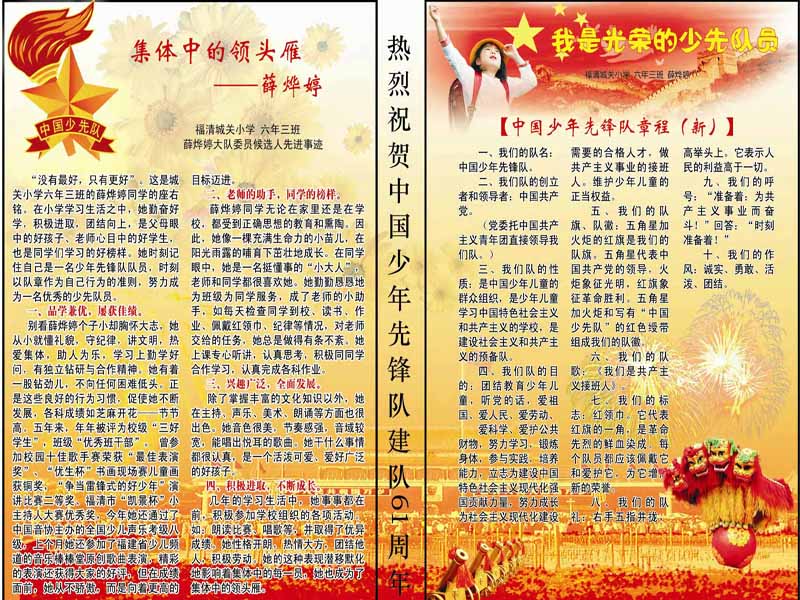 中国少先队
集体中的领头雁
——薛烨婷
福清城关小学 六年三班
薛烨婷大队委员候选人先进事迹
“没有最好，只有更好”。这是城
关小学六年三班的薛烨婷同学的座右
铭。在小学学习生活之中，她勤奋好
学，积极进取，团结向上，是父母眼
中的好孩子、老师心目中的好学生，
也是同学们学习的好榜样。她时刻记
住自己是一名少年先锋队队员，时刻
以队章作为自己行为的准则，努力成
为一名优秀的少先队员。
一、品学兼优，屡获佳绩。
别看薛烨婷个子小却胸怀大志，她
从小就懂礼貌，守纪律，讲文明，热
爱集体，助人为乐，学习上勤学好
问，有独立钻研与合作精神。她有着
一股钻劲儿，不向任何困难低头。正
是这些良好的行为习惯，促使她不断
发展，各科成绩如芝麻开花——节节
高。五年来，年年被评为校级“三好
学生”，班级“优秀班干部”。曾参
加校园十佳歌手赛荣获“最佳表演
奖”、“优生杯”书画现场赛儿童画
获铜奖；“争当雷锋式的好少年”演
讲比赛二等奖。福清市“凯景杯”小
主持人大赛优秀奖，今年她还通过了
中国音协主办的全国少儿声乐考级八
级。上个月她还参加了福建省少儿频
道的音乐棒棒堂原创歌曲表演，精彩
的表演还获得大家的好评。但在成绩
面前，她从不骄傲，而是向着更高的
目标迈进。
二、老师的助手，同学的榜样。
薛烨婷同学无论在家里还是在学
校，都受到正确思想的教育和熏陶。因
此，她像一棵充满生命力的小苗儿，在
阳光雨露的哺育下茁壮地成长。在同学
眼中，她是一名挺懂事的“小大人”，
老师和同学都很喜欢她。她勤勤恳恳地
为班级为同学服务，成了老师的小助
手，如每天检查同学到校、读书、作
业、佩戴红领巾、纪律等情况，对老师
交给的任务，她总是做得有条不紊。她
上课专心听讲，认真思考，积极同同学
合作学习，认真完成各科作业。
三、兴趣广泛，全面发展。
除了掌握丰富的文化知识以外，她
在主持、声乐、美术、朗诵等方面也很
出色。她音色很美，节奏感强，音域较
宽，能唱出悦耳的歌曲。她干什么事情
都很认真，是一个活泼可爱、爱好广泛
的好孩子。
四、积极进取，不断成长。
几年的学习生活中，她事事都在
前，积极参加学校组织的各项活动，
如：朗读比赛、唱歌等，并取得了优异
成绩。她性格开朗、热情大方，团结他
人，积极劳动。她的这种表现潜移默化
地影响着集体中的每一员。她也成为了
集体中的领头雁。
热烈祝贺中国少年先锋队建队61周年
我是光荣的少先队员
福清城关小学 六年三班 薛烨婷
【中国少年先锋队章程（新）】
一、我们的队名：
中国少年先锋队。
二、我们队的创立
者和领导者：中国共产
党。
（党委托中国共产
主义青年团直接领导我
们队。）
三、我们队的性
质：是中国少年儿童的
群众组织，是少年儿童
学习中国特色社会主义
和共产主义的学校，是
建设社会主义和共产主
义的预备队。
四、我们队的目
的：团结教育少年儿
童，听党的话，爱祖
国、爱人民、爱劳动、
爱科学、爱护公共
财物，努力学习、锻炼
身体，参与实践，培养
能力，立志为建设中国
特色社会主义现代化强
国贡献力量，努力成长
为社会主义现代化建设
需要的合格人才，做
共产主义事业的接班
人。维护少年儿童的
正当权益。
五、我们的队
旗、队徽：五角星加
火炬的红旗是我们的
队旗。五角星代表中
国共产党的领导，火
炬象征光明，红旗象
征革命胜利。五角星
加火炬和写有“中国
少先队”的红色绶带
组成我们的队徽。
六、我们的队
歌：《我们是共产主
义接班人》。
七、我们的标
志：红领巾。它代表
红旗的一角，是革命
先烈的鲜血染成。每
个队员都应该佩戴它
和爱护它，为它增添
新的荣誉。
八、我们的队
礼：右手五指并拢，
高举头上。它表示人
民的利益高于一切。
九、我们的呼
号：“准备着：为共
产主义事业而奋
斗！”回答：“时刻
准备着！”
十、我们的作
风：诚实、勇敢、活
泼、团结。